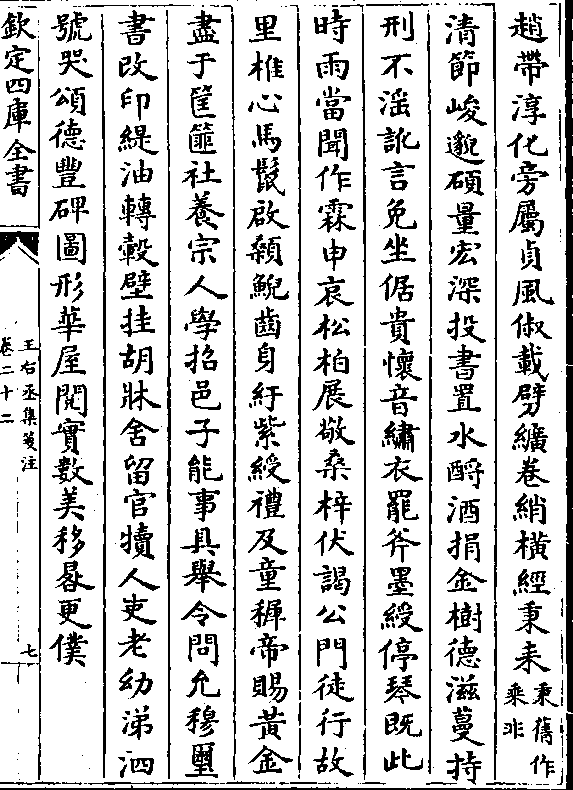 趙帶淳化旁屬貞風俶載劈纊卷綃橫經秉耒秉舊作乘非
清節峻邈碩量宏深投書置水酹酒捐金樹德滋蔓持
刑不滛訛言免坐倨貴懷音繡衣罷斧墨綬停琴既此
時雨當聞作霖申哀松柏展敬桑梓伏謁公門徒行故
里椎心馬鬛啟顙鯢齒身紆紫綬禮及童穉帝賜黃金
盡于筐篚社養宗人學招邑子能事具舉令問允穆璽
書改印緹油轉轂壁挂胡牀舍留官犢人吏老幼涕泗
號哭頌德豐碑圖形華屋閱實數美移晷更僕
欽定四庫全書
王右丞集箋注
卷二十二
七